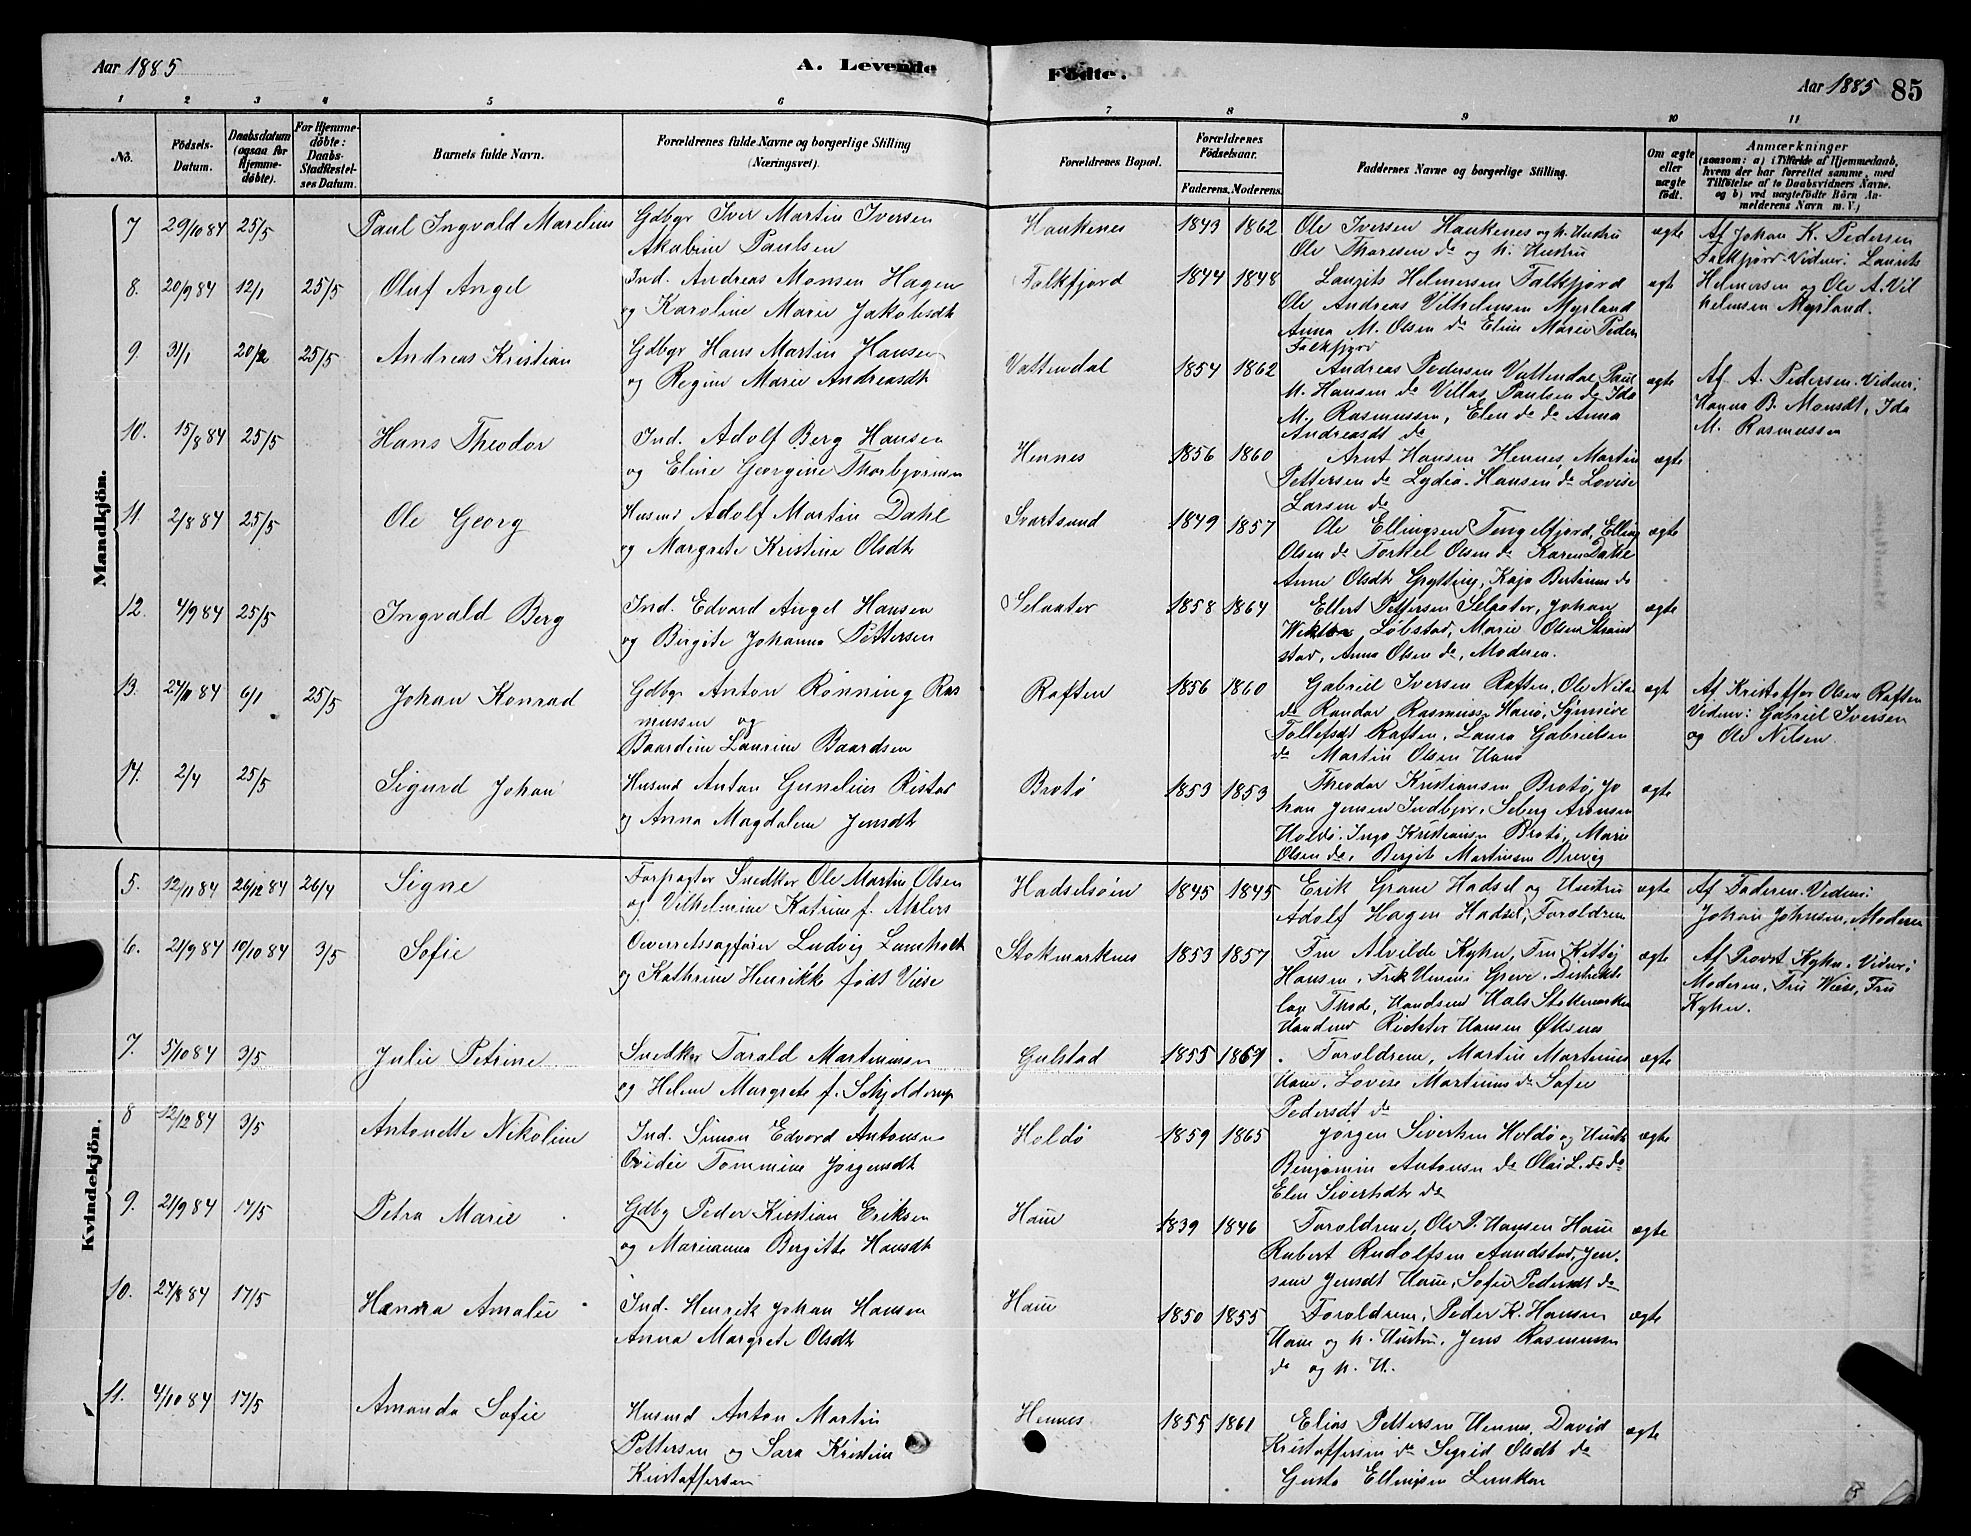 Aar 1885
A. Levende
Fødte.
Aar 1885
85
1 2 3 4 5 6 7 8 9 10 11
No.
Fødsels-Datum.
Daabsdatum (ogsaa for Hjemme-døbte).
For Hjemme-døbte: Daabs-Stadfæstel-ses Datum.
Barnets fulde Navn.
Forældrenes fulde Navne og borgerlige Stilling (Næringsvei).
Forældrenes Bopæl.
Forældrenes Fødselsaar.
Faderens. Moderens.
Faddernes Navne og borgerlige Stilling.
Om ægte eller uægte født.
Anmærkninger
(saasom: a) i Tilfælde af Hjemmedaab, hvem der har forrettet samme, med Tilføielse af to Daabsvidners Navne, og b) ved uægtefødte Børn An-melderens Navn m. V.)
Mandkjön.
7 29/10 84 25/5 Paul Ingvald Marelius
Gdbgr Iver Martin Iversen
Akabine Paulsen
Haukenes 1843 1862
Ole Iversen Haukenes og h. Hustru
Ole Thoresen do og h. Hustru
ægte
Af Johan K. Pedersen
Falkfjord. Vidner: Laurits
8. 20/9 84 12/1 25/5 Oluf Angel
Ind. Andreas Monsen Hagen
og Karoline Marie Jakobsdt
Falkfjord 1844 1848
Laurits Helmersen Falkfjord
Ole Andreas Vilhelmsen Myrland
Anna M. Olsen do Eline Marie Peder
Falkfjord
ægt
Helmersen og Ole A. Vil
helmsen Myrland.
9. 31/1 20/2 25/5 Andreas Kristian
Gdbgr Hans Martin Hansen
og Regine Marie Andreasdt
Vattendal 1854 1862
Andreas Pedersen Vattendal, Paul
M. Hansen do Villas Paulsen do Ida
M. Rasmussen, Elen do do Anna
Andreasdt do
ægte
Af A. Pedersen. Vidner:
Hanna B. Monsdt, Ida
M. Rasmussen
10. 15/8 84 25/5 Hans Theodor
Ind. Adolf Berg Hansen
og Eline Georgine Thorbjørnsen
Hennes 1856 1860
Arnt Hansen Hennes, Martin
Pettersen do Lydia Hansen do Lovise
Larsen do
ægte
11. 2/8 84 25/5 Ole Georg
Husmd Adolf Martin Dahl
og Margrete Kristine Olsdt
Svartsund 1849 1857
Ole Ellingsen Tengelfjord, Elling
Olsen do Torkel Olsen do Karen Dahl
Anne Olsdt Grytting, Kaja Bertinus do
ægte
12. 4/9 84 25/5 Ingvald Berg
Ind. Edvard Angel Hansen
og Birgite Johanna Pettersen
Selaater 1858 1864
Ellert Pettersen Selaater, Johan
Løbstad, Marie Olsen Strand
stad, Anna Olsen do, Moderen.
ægte
13. 24/11 84 6/1 25/5 Johan Konrad
Gdbgr Anton Rønning Ras
mussen og
Baardine Laurine Baardsen
Raften 1856 1860
Gabriel Iversen Raften, Ole Nils
do Randar Rasmussen Hanø, Synnøve
Tollefsdt Raften, Laura Gabrielsen
do Martin Olsen Hanø
ægt
Af Kristoffer Olsen Raften
Vidner: Gabriel Iversen
og Ole Nilsen.
14. 2/4 25/5 Sigurd Johan
Husmd Anton Gunelius Ristad
og Anna Magdalene Jensdt
Brotø 1853 1853
Theodor Kristiansen Brotø, Jo
han Jensen Indbjor, Seberg Aronsen
Holdø. Inga Kristiansen Brotø, Marie
Olsen do, Bergite Martinsen Brevig
ægte
Kvindekjön.
5. 12/11 84 26/12 84 26/4 Signe
Forpagter Snedker Ole Martin Olsen
og Vilhelmine Katrine f. Ahlers
Hadseløien 1845 1845
Erik Grane Hadsel og Hustru
Adolf Hagen Hadsel, Forældrene
ægte
Af Faderen. Vidner:
Johan Johnsen, Moderen
6. 21/9 84 19/10 84 3/5 Sofie
Overretssagfører Ludvig Lumholdt
og Kathrine Henrikke født Wiese
Stokmarknes 1853 1857
Fru Alvilde Kyhn, Fru Kitty
Hansen, Frk Greve, Distrikts
læge Thode, Handsmd Hals Stokmarkn
Handsmd Richter Hansen Øknes
ægte
Af Provst Kyhn. Vidner:
Moderen, Fru Wiese, Fru
Kyhn.
7. 5/10 84 3/5 Julie Petrine
Snedker Tarald Martinusen
og Helene Margrete f. Schjelderup
Gulstad 1855 1861
Forældrene, Martin Martinus
Haue. Lovise Martinus do Sofie
Pedersdt do
ægte
8 12/12 84 3/5 Antonette Nikoline
Ind. Simon Edvard Antonsen
Ovidie Tommine Jørgensdt
Holdø 1859 1865
Jørgen Sivertsen Holdø og Hustr
Benjamin Antonsen do Olai L. do do
Elen Sivertsdt do
ægte
9. 21/9 84 17/5 Petra Marie
Gdbg Peder Kristian Eriksen
og Marianna Bergitte Hansdt
Haue 1839 1846
Forældrene, Ole P. Hansen Haue
Robert Rudolfsen Aundstad, Jen-
sine Jensdt Haue, Sofie Pedersdt do
ægte
10. 24/8 84 17/5 Hanna Amalie
Ind. Henrik Johan Hansen
Anna Margrete Olsdt
Haue 1850 1855
Forældrene, Peder K. Hansen
Haue og h. Hustru, Jens Rasmussen
do og h. H.
ægte
11. 4/10 84 17/5 Amanda Sofie
Husmd Anton Martin
Pettersen og Sara Kristine
Kristoffersen
Hennes 1855 1861
Elias Pettersen Hennes, David
Kristoffersen do Sigrid Olsdt do
Gusta Ellingsen Lunkan
ægte